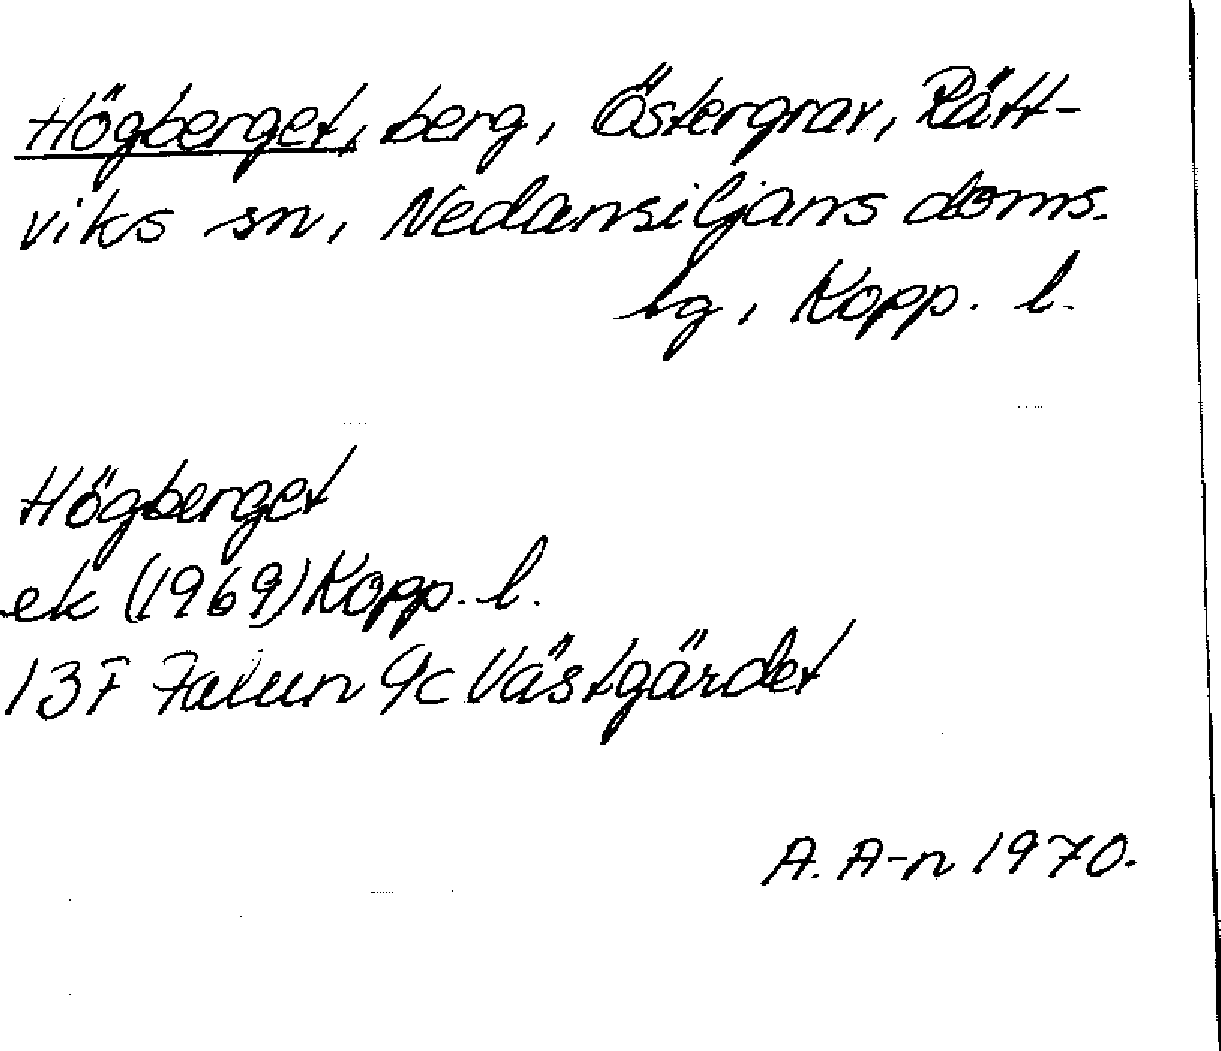 Högberget, berg, Östergrav, Rätt-
viks sn, Nedansiljans doms.
lg, Kopp. l.
Högberget
ek (1969) Kopp. l.
13F Falun 9c Västgärdet
A. A-n 1970.